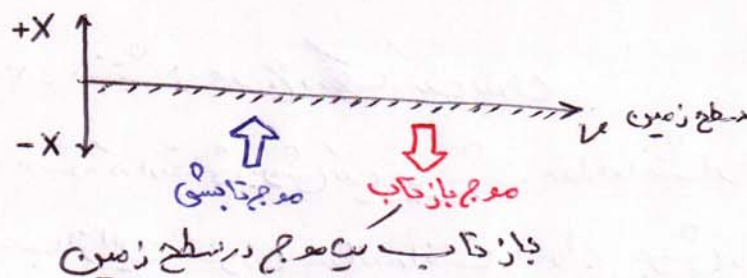 +X
سطح زمین
-X
موج تابشی
موج بازتاب
بازتاب یک موج در سطح زمین